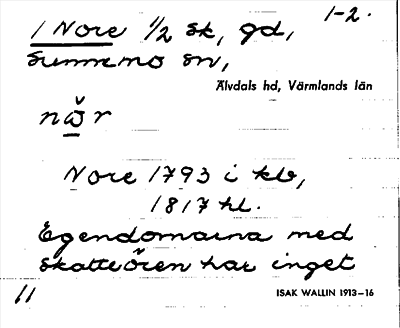 1-2.
1 Nore 1/2 sk, gd,
Sunnemo sn,
Älvdals hd, Värmlands län
nω̌r
Nore 1793 i kb,
1817 hl.
Egendomarna med
skatteören har inget
11
ISAK WALLIN 1913–16